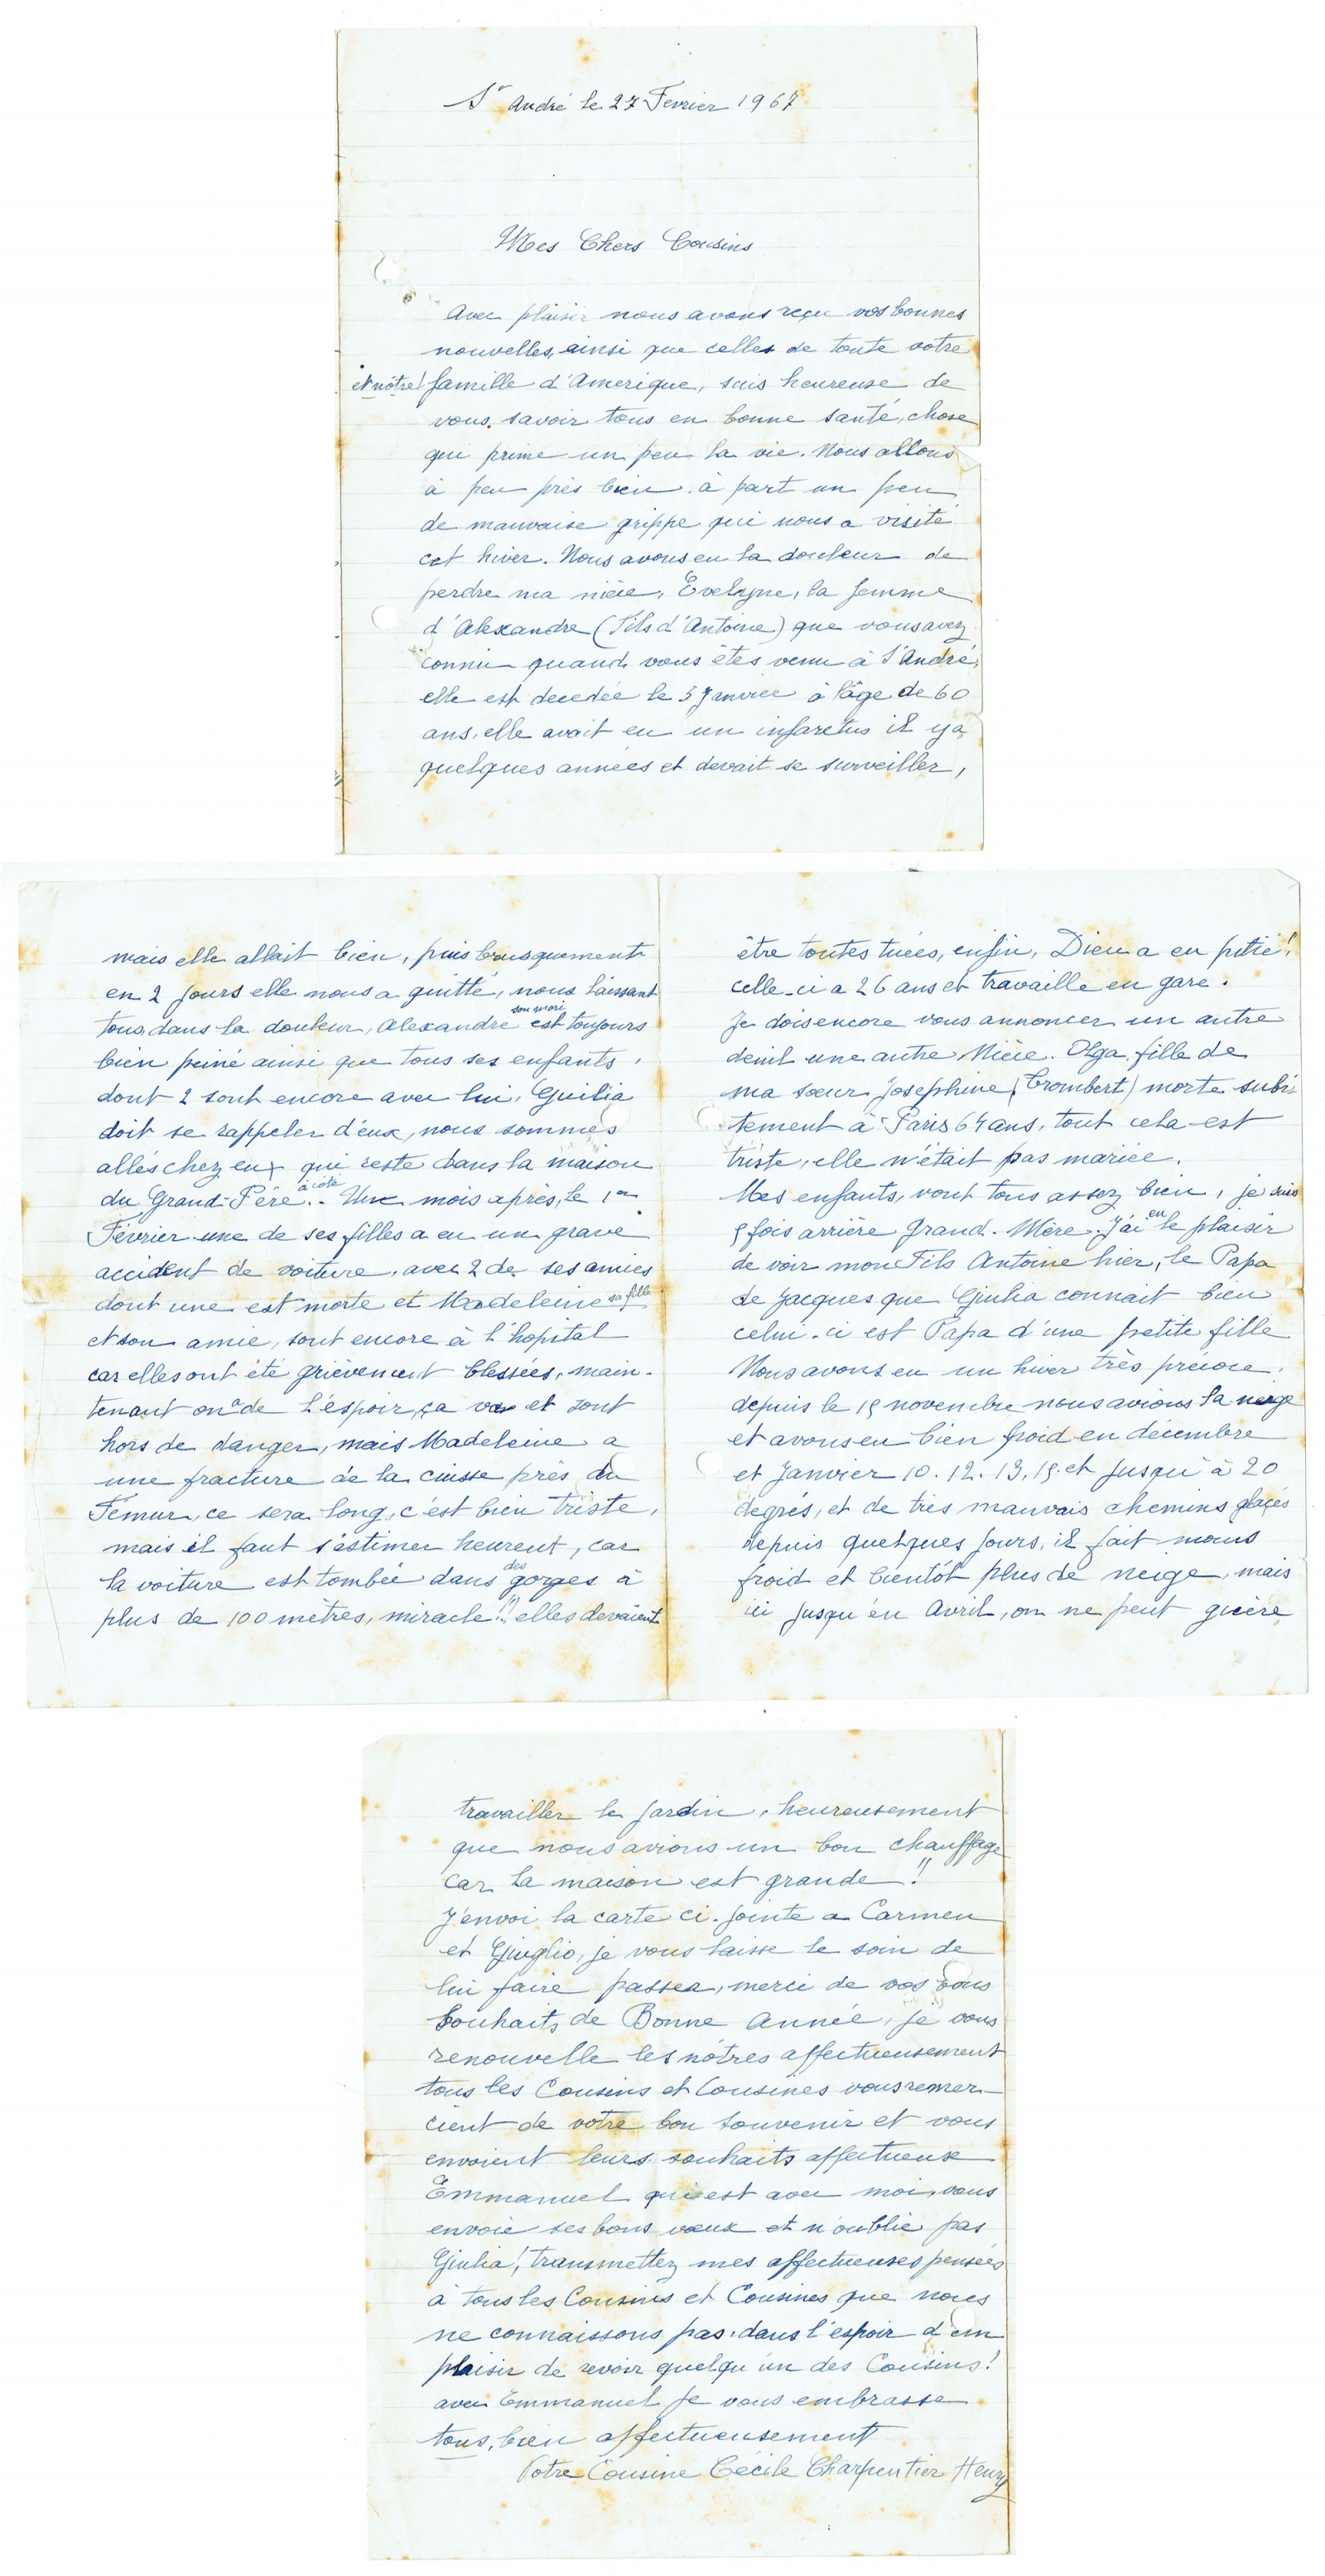 St André le 27 Fevrier 1967
Mes Chers Cousins
Avec plaisir nous avons reçu vos bonnes
nouvelles, ainsi que celles de toute votre
et nôtre! famille d'Amerique, suis heureuse de
vous savoir tous en bonne santé, chose
qui prime un peu la vie. Nous allons
à peu près bien. à part un peu
de mauvaise grippe qui nous a visité
cet hiver. Nous avons eu la douleur de
perdre ma nièce, Evelyne, la femme
d'Alexandre (Fils d'Antoine) que vous avez
connu quand vous êtes venu à St André,
elle est decedée le 3 Janvier à l'âge de 60
ans, elle avait eu un infarctus il y a
quelques années et devait se surveiller,
mais elle allait bien, puis brusquement
en 2 jours elle nous a quitté, nous laissant
son mari
tous dans la douleur, Alexandre est toujours
bien peiné ainsi que tous ses enfants,
dont 2 sont encore avec lui, Guilia
doit se rappeler d'eux, nous sommes
allés chez eux qui reste dans la maison
à côté
du Grand-Père.. Un mois après, le 1er
Février une de ses filles a eu un grave
accident de voiture, avec 2 de ses amies
dont une est morte et Madeleine sa fille
et son amie, sont encore à l'hopital
car elles ont été grièvement blessées, main-
tenant on a de l'éspoir, ça va et sont
hors de danger, mais Madeleine a
une fracture de la cuisse près du
Fémur, ce sera long, c'est bien triste,
mais il faut s'éstimer heureux, car
des
la voiture est tombée dans gorges à
plus de 100 mètres, miracle!! elles devaient
être toutes tuées, enfin, Dieu a eu pitié!
celle-ci a 26 ans et travaille en gare.
Je dois encore vous annoncer un autre
deuil une autre Nièce. Olga, fille de
ma sœur Josephine (Trombert) morte subi-
tement à Paris 64 ans, tout cela est
triste, elle n'était pas mariée.
Mes enfants, vont tous assez bien, je suis
eu
5 fois arrière Grand-Mère. J'ai le plaisir
de voir mon Fils Antoine hier, le Papa
de Jacques que Giulia connait bien
celui-ci est Papa d'une petite fille
Nous avons eu un hiver très précoce,
depuis le 15 novembre nous avions la neige
et avons eu bien froid en décembre
et Janvier 10. 12. 13. 15. et jusqu'à 20
degrés, et de très mauvais chemins glaçés
depuis quelques jours, il fait moins
froid et bientôt plus de neige, mais
ici jusqu'en Avril, on ne peut guère
travailler le jardin, heureusement
que nous avions un bon chauffage
car la maison est grande!!
J'envoi la carte ci-jointe a Carmen
et Giuglio, je vous laisse le soin de
lui faire passer, merci de vos bons
souhaits de Bonne Année, je vous
renouvelle les nôtres affectueusement
tous les Cousins et Cousines vous remer-
cient de votre bon souvenir et vous
envoient leurs souhaits affectueux
Emmanuel qui est avec moi, vous
envoie ses bons vœux et n'oublie pas
Giulia!, transmettez mes affectueuses pensées
à tous les Cousins et Cousines que nous
ne connaissons pas, dans l'espoir d'un
plaisir de revoir quelqu'un des Cousins!
avec Emmanuel je vous embrasse
tous, bien affectueusement
Votre Cousine Cécile Charpentier Henry